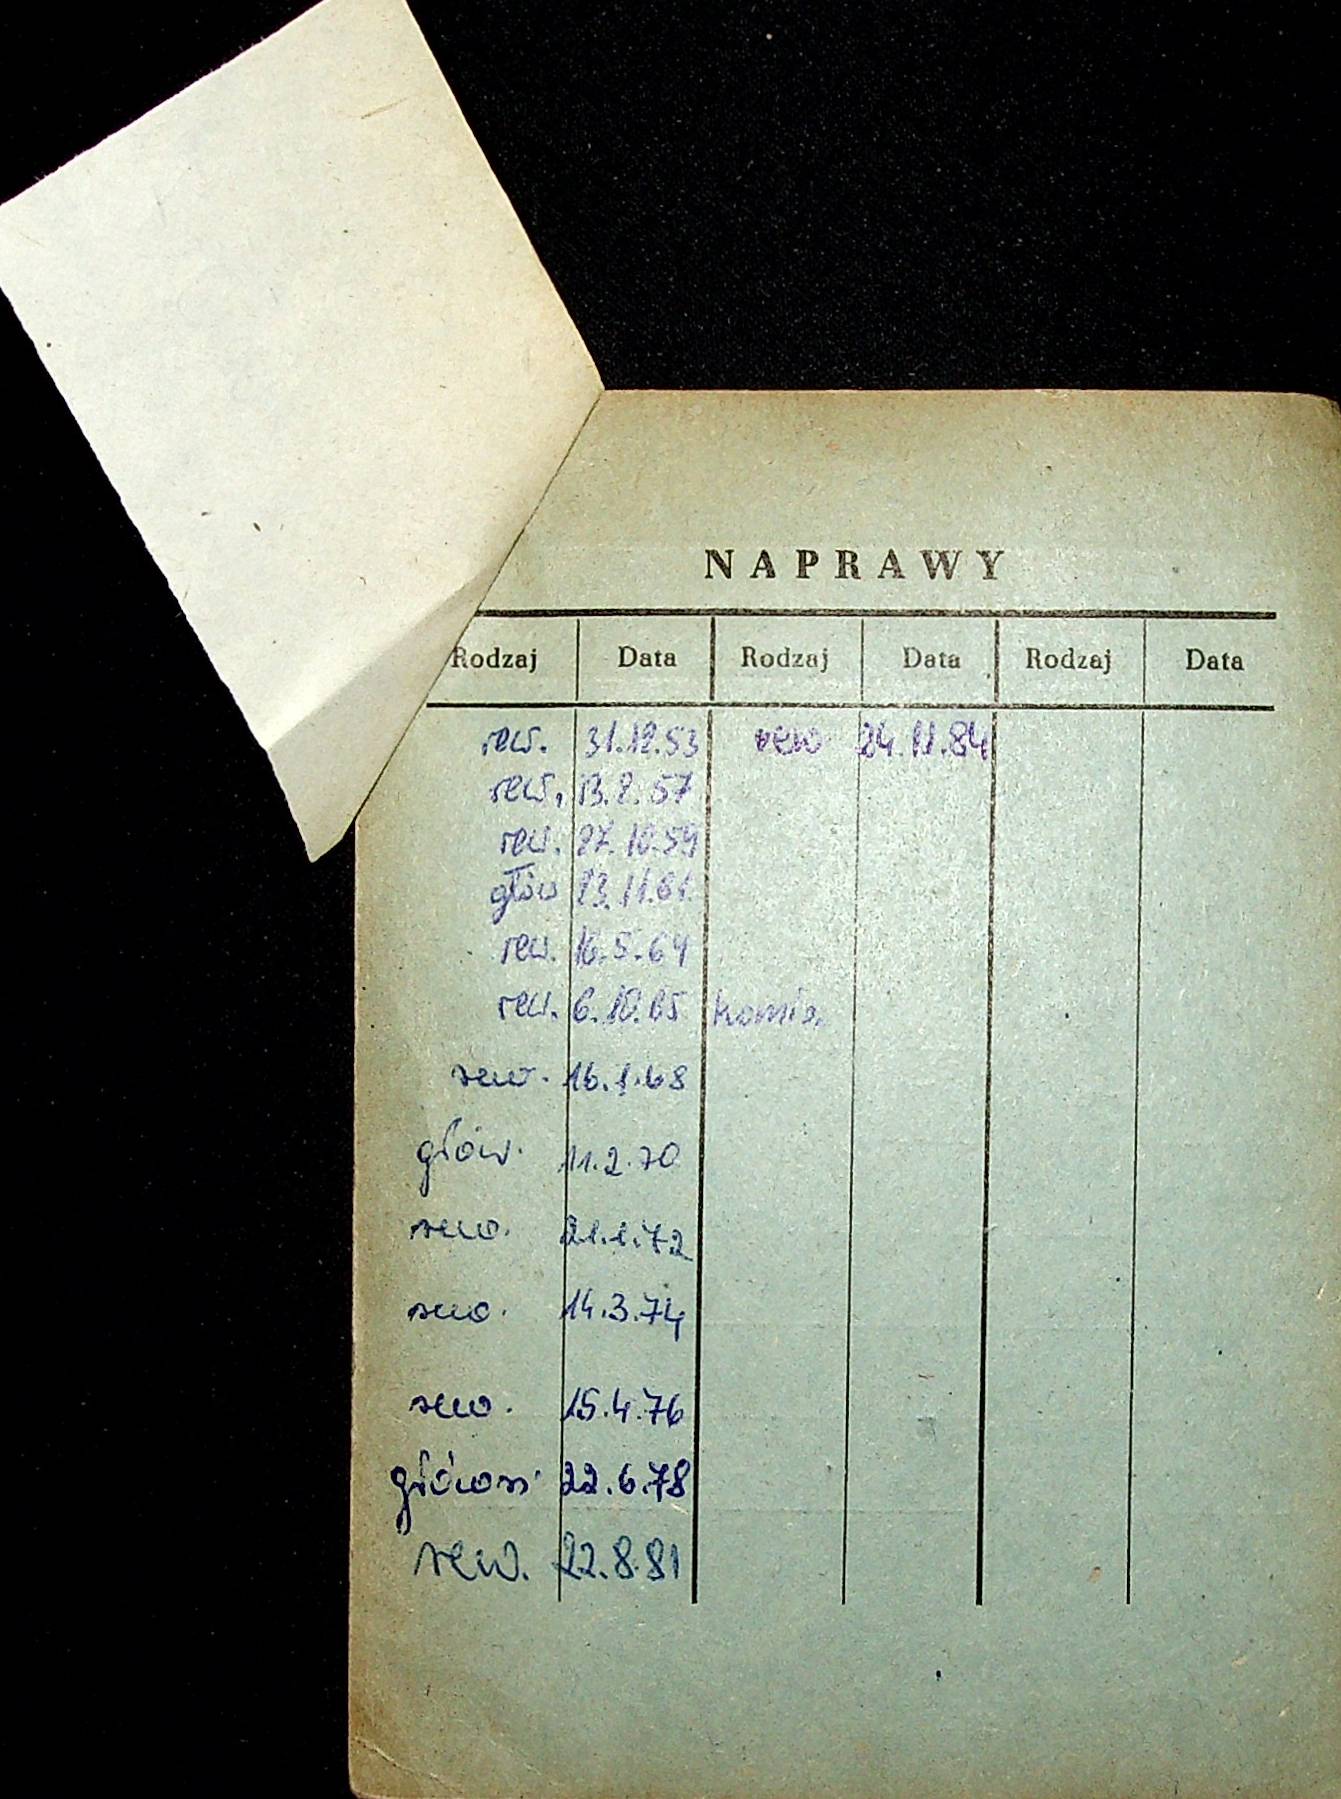 NAPRAWY
Rodzaj Data Rodzaj Data Rodzaj Data
rew. 31.12.53 rew 24.11.84
rew. 13.8.57
rew. 27.10.59
głów 23.11.61.
rew. 16.5.64
rew. 6.10.65 komis.
rew. 16.1.68
głów. 11.2.70
rew. 21.1.72
rew. 14.3.74
rew. 15.4.76
główn. 22.6.78
rew. 22.8.81